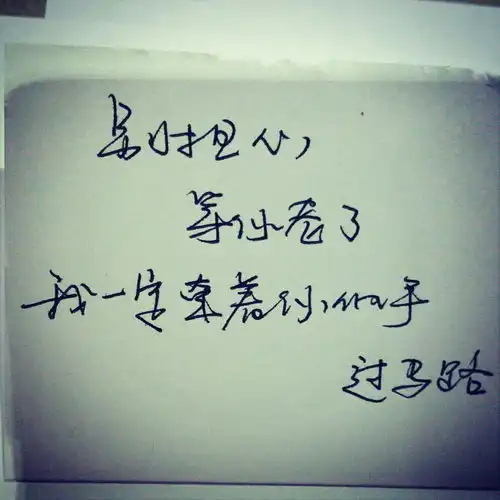 别担心，
等你老了
我一定牵着你的手
过马路